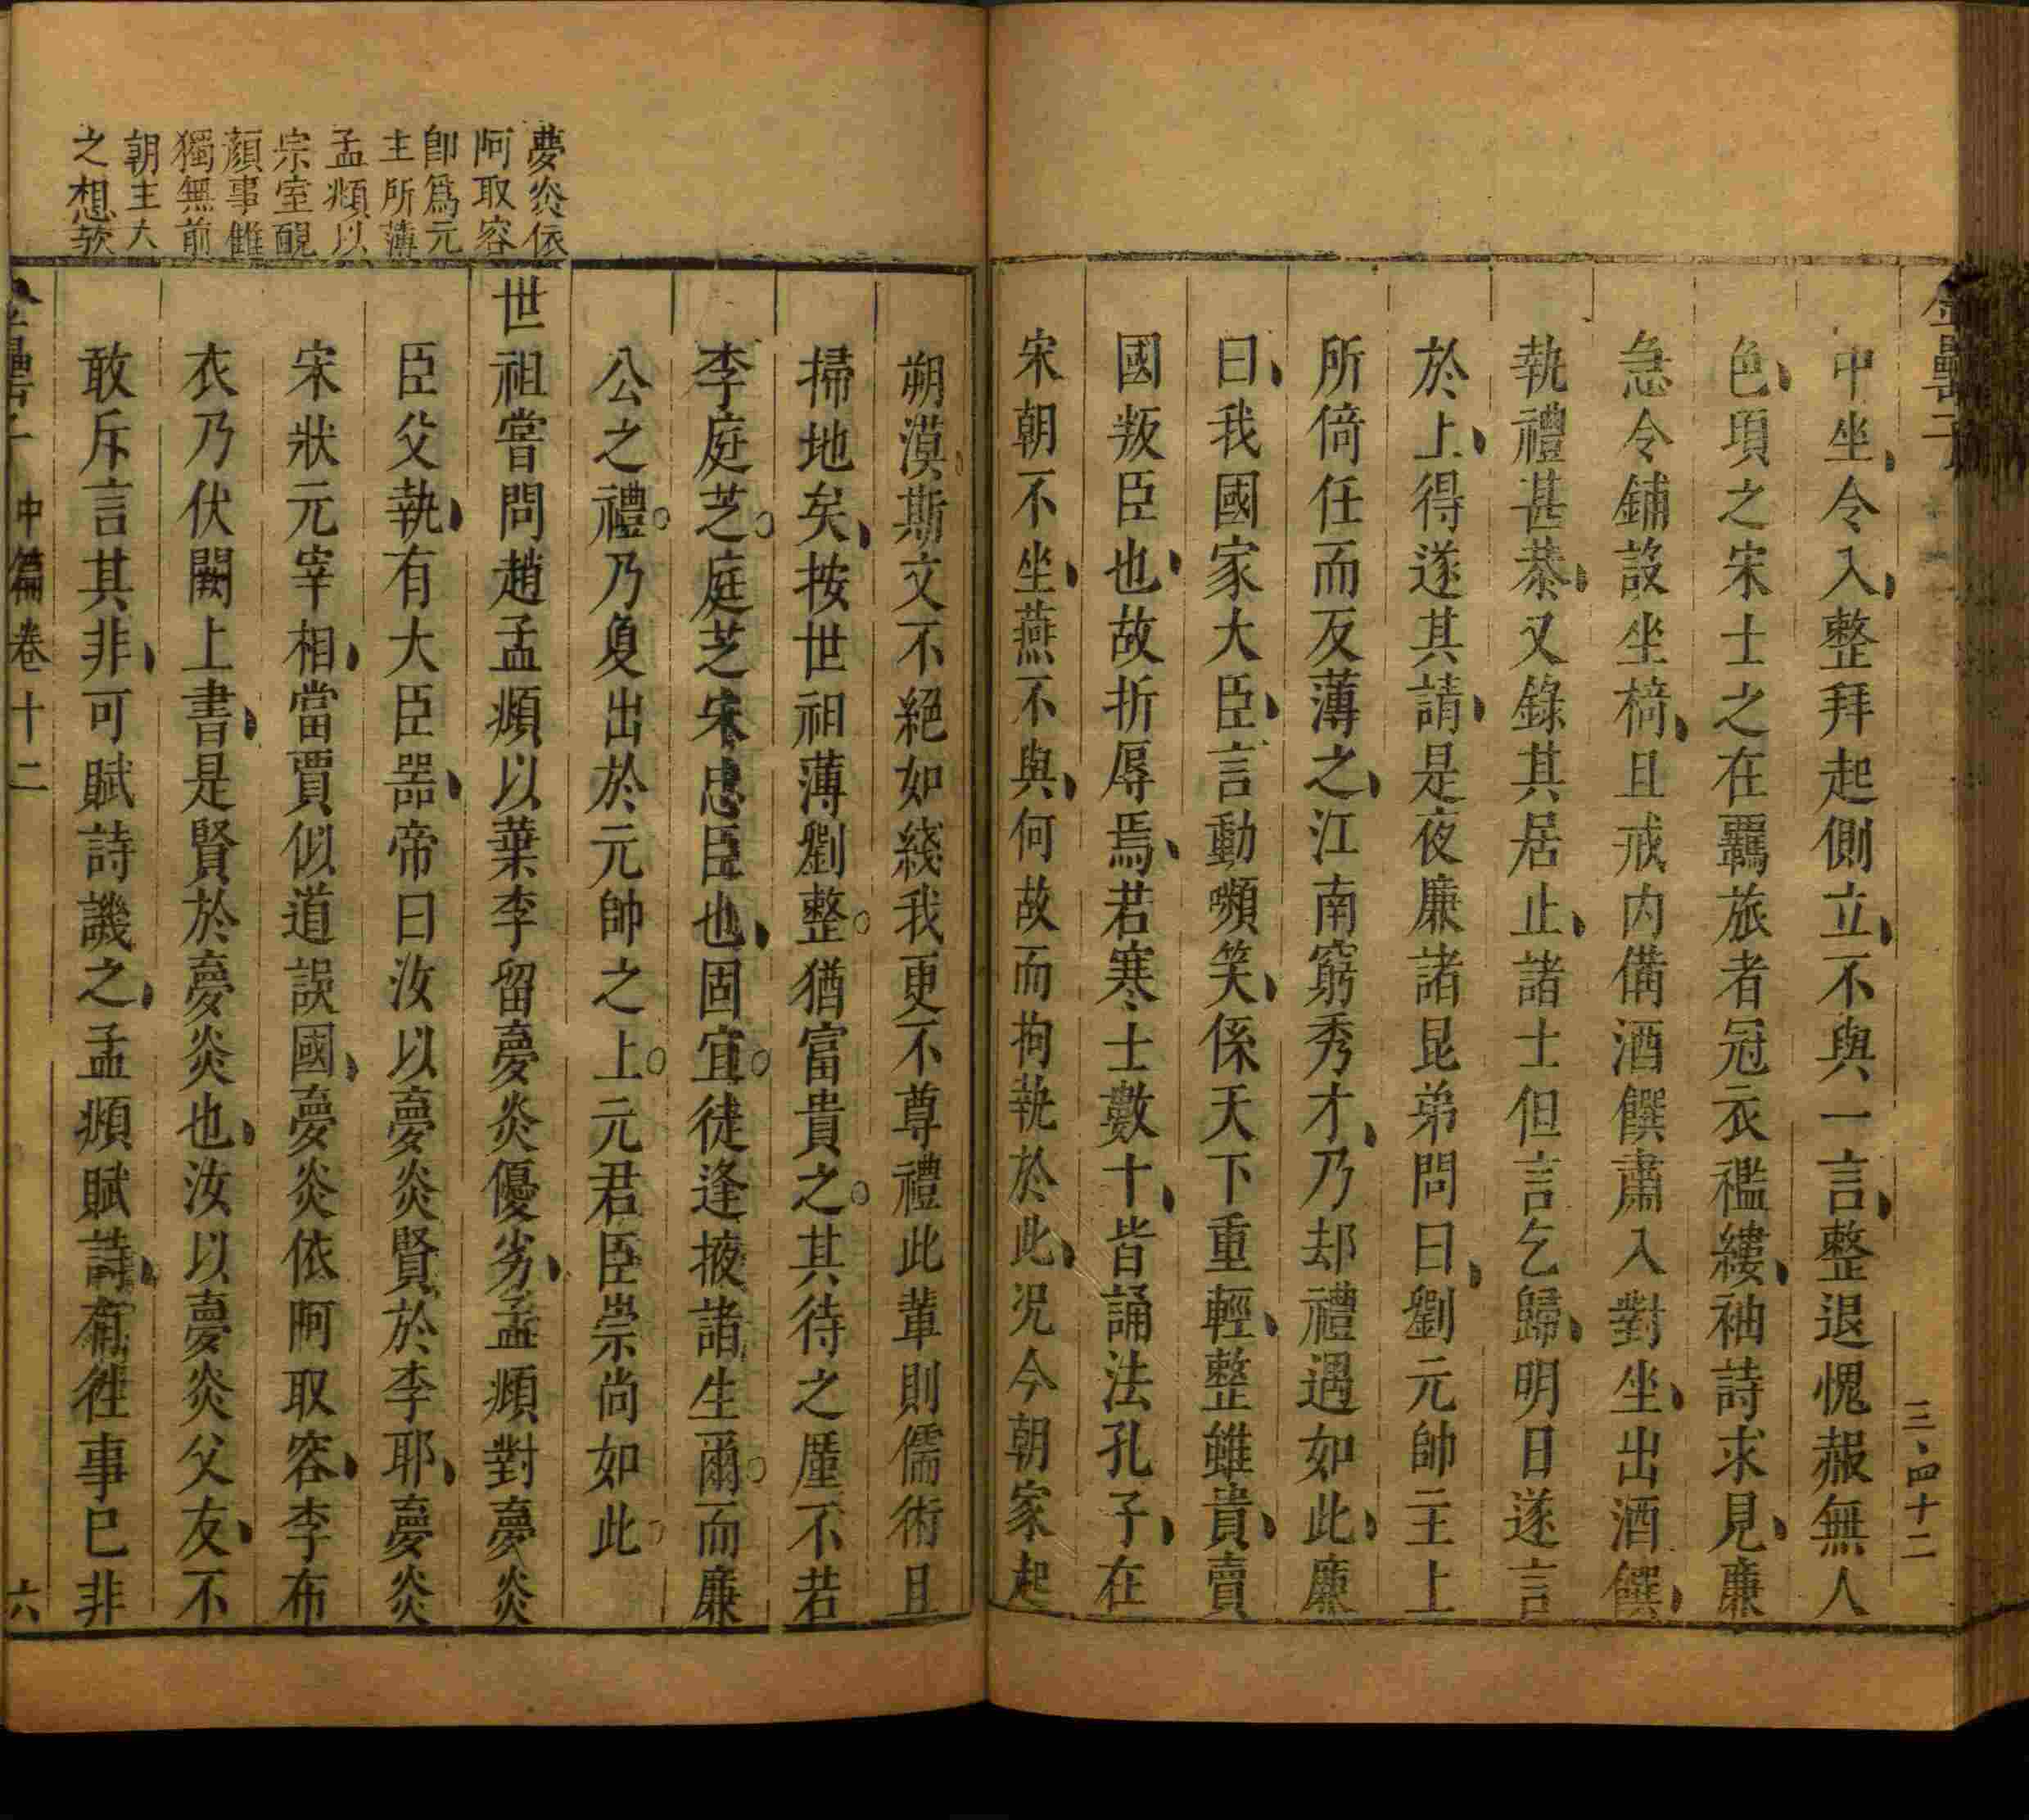 金罍子
三、四十二
中坐、令入、整拜起側立、不與一言、整退愧赧無人
色、項之宋士之在覊旅者冠衣襤縷、袖詩求見、廉
急令鋪設坐椅、且戒内備酒饌肅入對坐、出酒饌、
執禮甚恭、又錄其居止、諸士但言乞歸、明日遂言
於上、得遂其請、是夜廉諸昆弟問曰、劉元帥主上
所倚任而反薄之、江南窮秀才、乃却禮遇如此、廉
曰、我國家大臣、言動嚬笑、係天下重輕、整雖貴、賣
國叛臣也、故折辱焉、若寒士數十、皆誦法孔子、在
宋朝不坐、燕不與、何故而拘執於此、况今朝家起
朔漠、斯文不絕如綫我更不尊禮此輩則儒術且
掃地矣、按世祖薄劉整。猶富貴之。其待之厪不若
李庭芝。庭芝宋忠臣也、固宜。徒逢掖諸生爾。而廉
公之禮。乃夐出於元帥之上。元君臣崇尚如此
世祖嘗問趙孟頫以葉李留夢炎優劣、孟頫對夢炎
臣父執、有大臣噐、帝曰汝以夢炎賢於李耶、夢炎
宋狀元宰相、當賈似道誤國、夢炎依阿取容、李布
衣乃伏闕上書、是賢於夢炎也、汝以夢炎父友、不
敢斥言其非、可賦詩譏之、孟頫賦詩、有往事已非
夢炎依
阿取容
卽爲元
主所薄
孟頫以
宗室靦
顔事讎
獨無前
朝主大
之想欤
金罍子 中篇卷十二 六